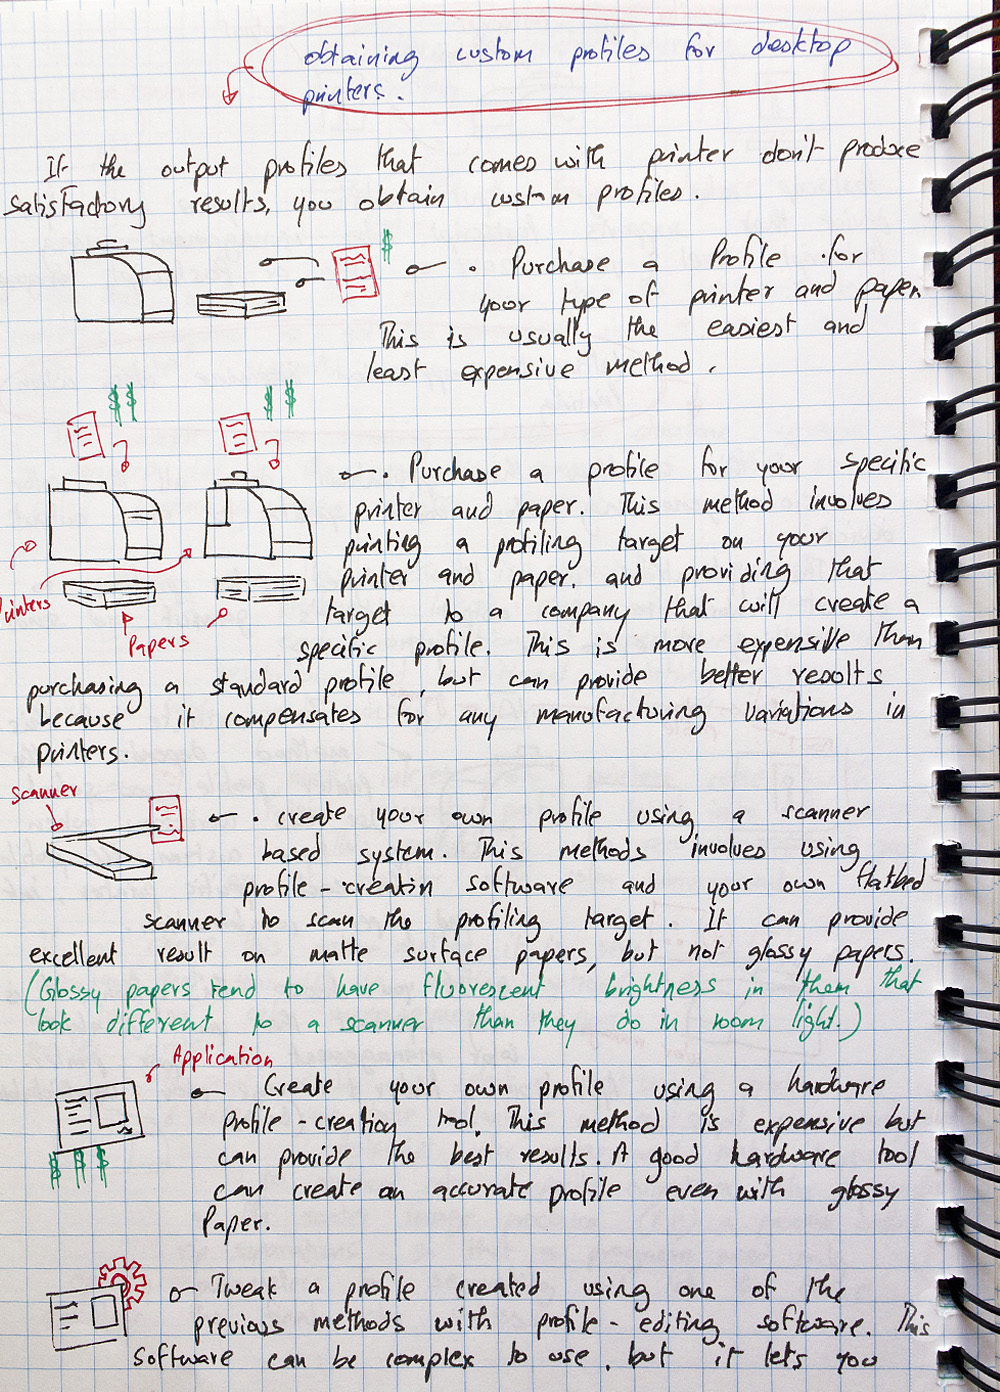 obtaining custom profiles for desktop
printers.
If the output profiles that comes with printer don't produce
satisfactory results, you obtain custom profiles.
$
. Purchase a Profile for
your type of printer and paper.
This is usually the easiest and
least expensive method.
$$ $$
. Purchase a profile for your specific
printer and paper. This method involves
printing a profiling target on your
printer and paper. and providing that
target to a company that will create a
specific profile. This is more expensive than
purchasing a standard profile, but can provide better results
because it compensates for any manufacturing variations in
printers.
Printers
Papers
scanner
. create your own profile using a scanner
based system. This methods involves using
profile-creatin software and your own flatbed
scanner to scan the profiling target. It can provide
excellent result on matte surface papers, but not glossy papers.
(Glossy papers tend to have fluorescent brightness in them that
look different to a scanner than they do in room light.)
Application
Create your own profile using a hardware
profile-creation tool. This method is expensive but
can provide the best results. A good hardware tool
can create an accurate profile even with glossy
Paper.
$ $ $
Tweak a profile created using one of the
previous methods with profile-editing software. This
software can be complex to use, but it lets you